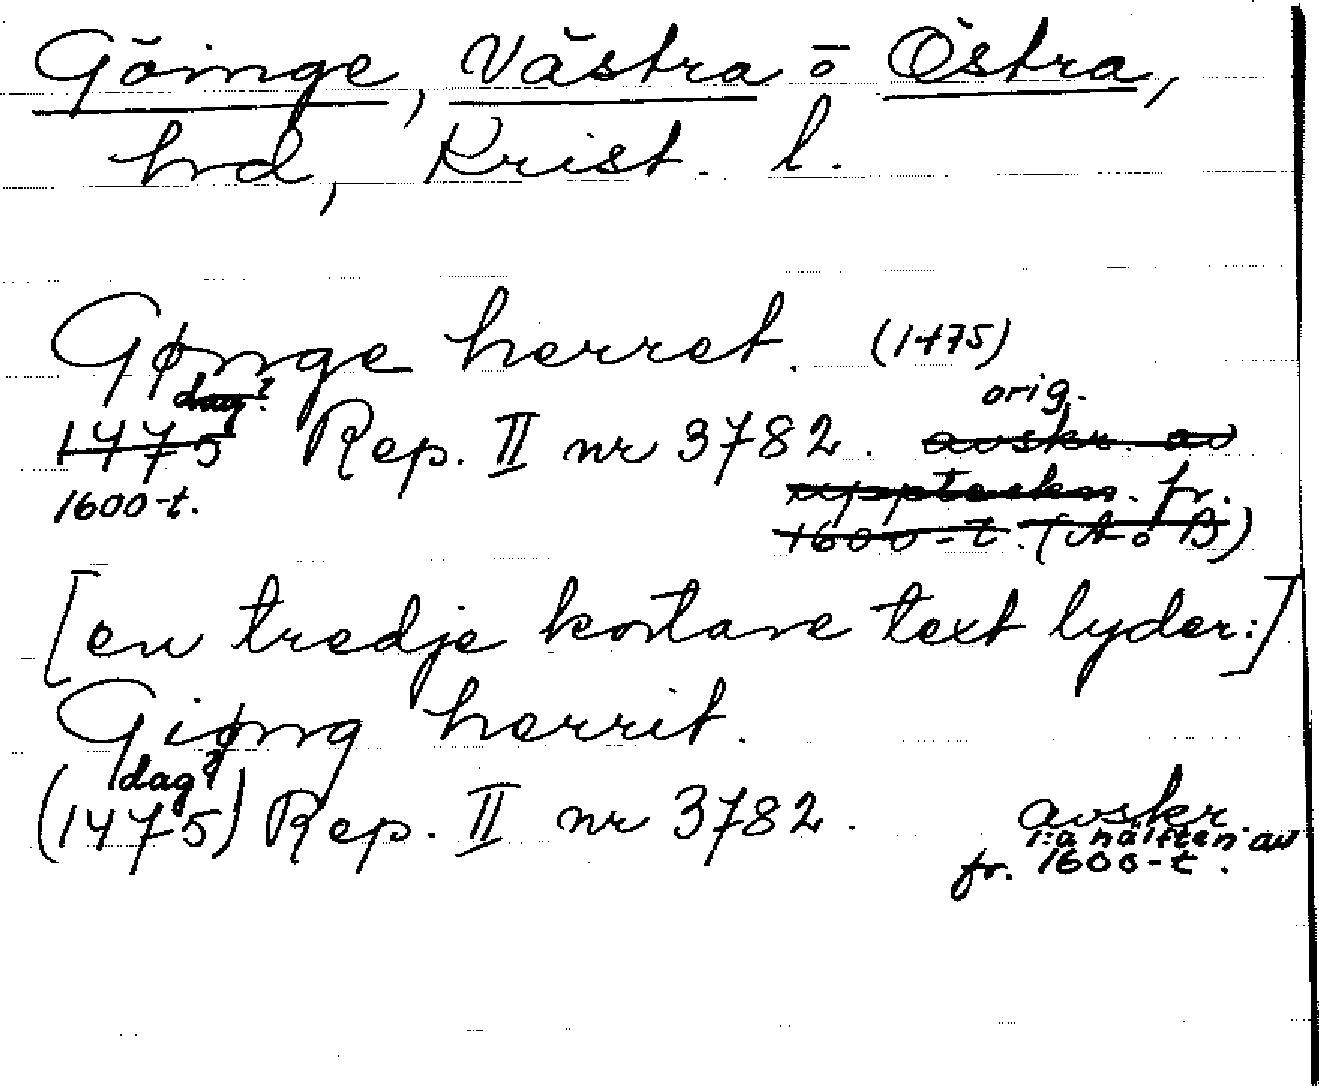 Göinge, Västra o Östra,
hrd, Krist. l.
Gønge herret. (1475)
dag? orig.
1475 Rep. II nr 3782. avskr. av
1600-t. uppteckn. fr.
1600-t. (A o B)
[en tredje kortare text lyder:]
Giøng herrit.
dag?
(1475) Rep. II nr 3782. avskr.
1:a hälften av
fr. 1600-t.